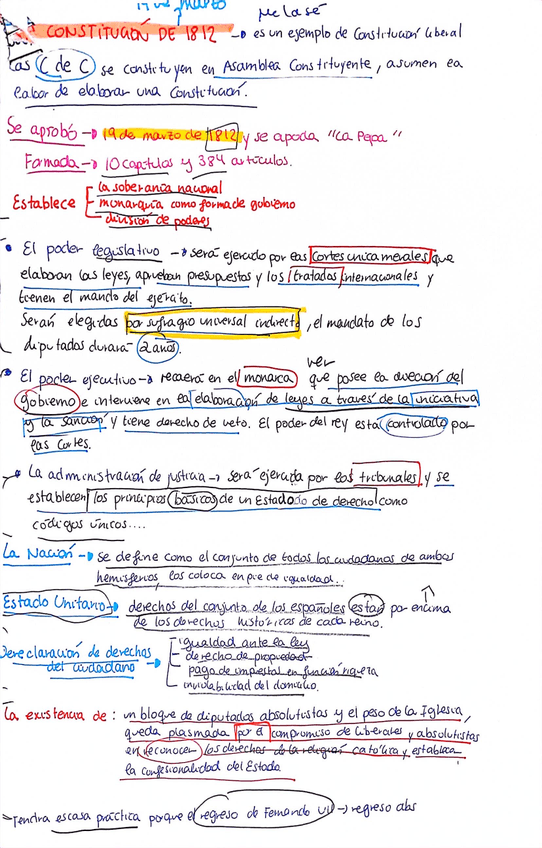 17 de marzo
me la sé
CONSTITUCIÓN DE 1812 → es un ejemplo de Constitución liberal
Las C de C se constituyen en Asamblea Constituyente, asumen la
labor de elaborar una Constitución.
Se aprobó → 19 de marzo de 1812 y se apoda "La Pepa"
Formada → 10 capítulos y 384 artículos.
Establece
la soberanía nacional
monarquía como forma de gobierno
división de poderes
• El poder legislativo → será ejercido por las Cortes unicamerales que
elaboran las leyes, aprueban presupuestos y los tratados internacionales y
tienen el mando del ejército.
Serán elegidas por sufragio universal indirecto, el mandato de los
diputados durará 2 años.
ver
• El poder ejecutivo → recaerá en el monarca que posee la dirección del
gobierno e interviene en la elaboración de leyes a través de la iniciativa
y la sanción y tiene derecho de veto. El poder del rey está controlado por
las Cortes.
La administración de justicia → será ejercida por los tribunales y se
establecen los principios básicos de un Estado de derecho como
códigos únicos....
La Nación → se define como el conjunto de todos los ciudadanos de ambos
hemisferios, los coloca en pie de igualdad..
Estado Unitario → derechos del conjunto de los españoles están por encima
de los derechos históricos de cada reino.
Dereclaración de derechos
del ciudadano →
igualdad ante la ley
derecho de propiedad
pago de impuestos en función riqueza
inviolabilidad del domicilio.
La existencia de: un bloque de diputados absolutistas y el peso de la Iglesia,
queda plasmada por el compromiso de liberales y absolutistas
en reconocer los derechos de la religión católica y establece
la confesionalidad del Estado
Tendrá escasa práctica porque el regreso de Fernando VII → regreso abs